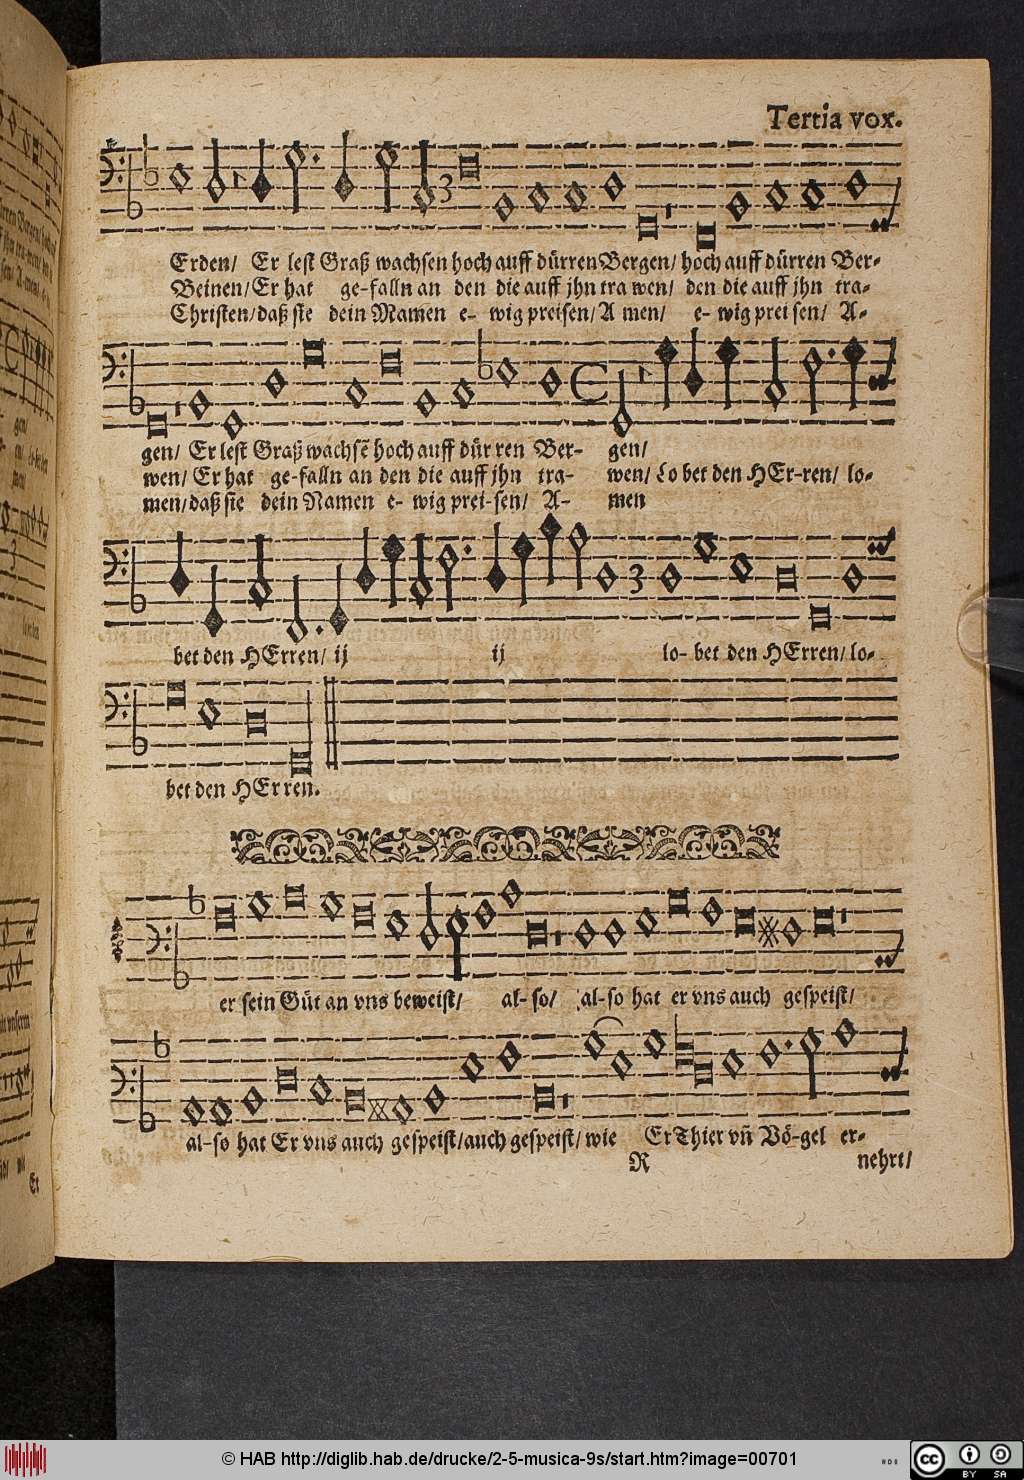 Tertia vox.
Erden/ Er lest Graß wachsen hoch auff dürren Bergen/ hoch auff dürren Ber-
Beinen/ Er hat ge-falln an den die auff jhn tra wen/ den die auff jhn tra-
Christen/ daß sie dein Namen e- wig preisen/ A men/ e- wig prei sen/ A-
gen/ Er lest Graß wachsē hoch auff dür ren Ber- gen/
wen/ Er hat ge-falln an den die auff jhn tra- wen/ Lo bet den HEr-ren/ lo-
men/ daß sie dein Namen e- wig prei-sen/ A- men
bet den HErren/ ij ij lo- bet den HErren/ lo-
bet den HEr ren.
er sein Güt an vns beweist/ al- so/ al-so hat er vns auch gespeist/
al-so hat Er vns auch gespeist/ auch gespeist/ wie Er Thier vñ Vö-gel er-
R nehrt/
© HAB http://diglib.hab.de/drucke/2-5-musica-9s/start.htm?image=00701
cc BY SA